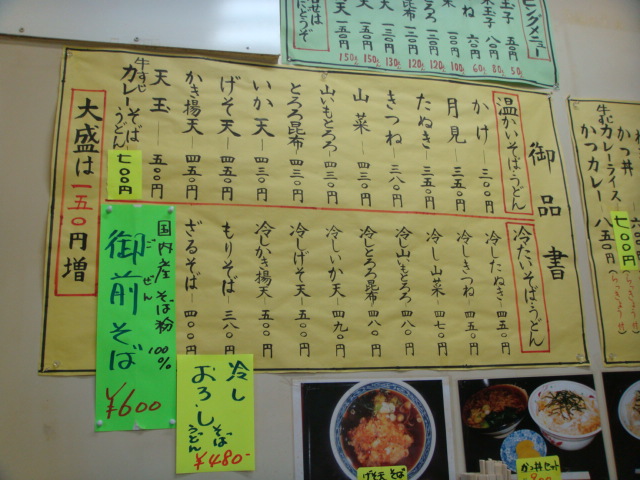 御品書
温かいそば・うどん
かけ 三〇〇円
月見 三五〇円
たぬき 三五〇円
きつね 三八〇円
山菜 四三〇円
山いもとろろ 四三〇円
とろろ昆布 四三〇円
いか天 四三〇円
げそ天 四五〇円
かき揚天 四五〇円
天玉 五〇〇円
牛すじカレーそば・うどん 七〇〇円
冷たいそば・うどん
冷したぬき 四五〇円
冷しきつね 四五〇円
冷し山菜 四七〇円
冷し山いもとろろ 四八〇円
冷しとろろ昆布 四八〇円
冷しいか天 四九〇円
冷しげそ天 五〇〇円
冷しかき揚天 五〇〇円
もりそば 三八〇円
ざるそば 四〇〇円
大盛は一五〇円増
国内産そば粉100%
御前そば
ごぜん
¥600
冷し
おろし そば うどん
¥480-
かつ丼
牛すじカレーライス 七〇〇円
かつカレー 八五〇円
げそ天そば
かつ丼セット